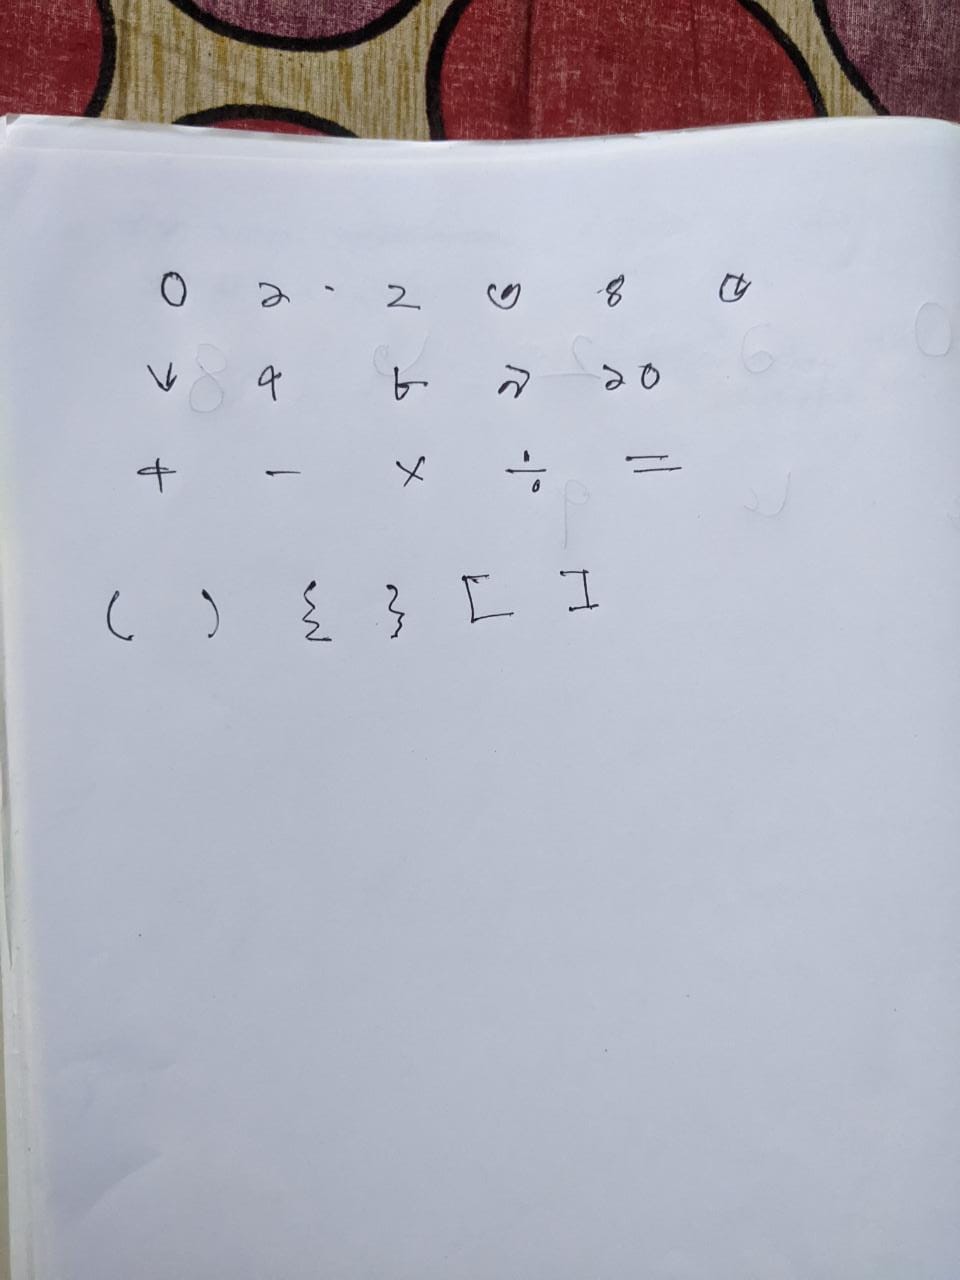 ০ ১ ২ ৩ ৪ ৫
৬ ৭ ৮ ৯ ১০
+ - × ÷ =
( ) { } [ ]